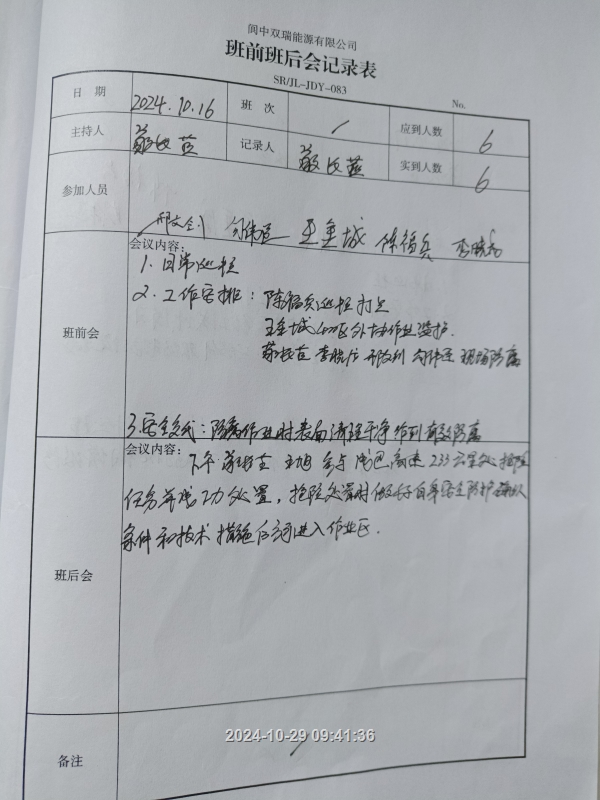 阆中双瑞能源有限公司
班前班后会记录表
SR/JL-JDY-083
No.
日 期 2024.10.16 班 次 / 应到人数 6
主持人 记录人 实到人数 6
参加人员 王金城 陈福兵
班前会 会议内容:
1.日常巡检
2.工作安排: 陈福兵巡检打点
王金城 外协作业监护.
现场防腐
3.安全交代: 防腐作业时表面清理干净 作到有效防腐
班后会 会议内容:
下午 参与 成巴高速 233公里处抢险
任务并成功处置, 抢险处置时做好自身安全防护
条件和技术措施后方可进入作业区.
备注 /
2024-10-29 09:41:36